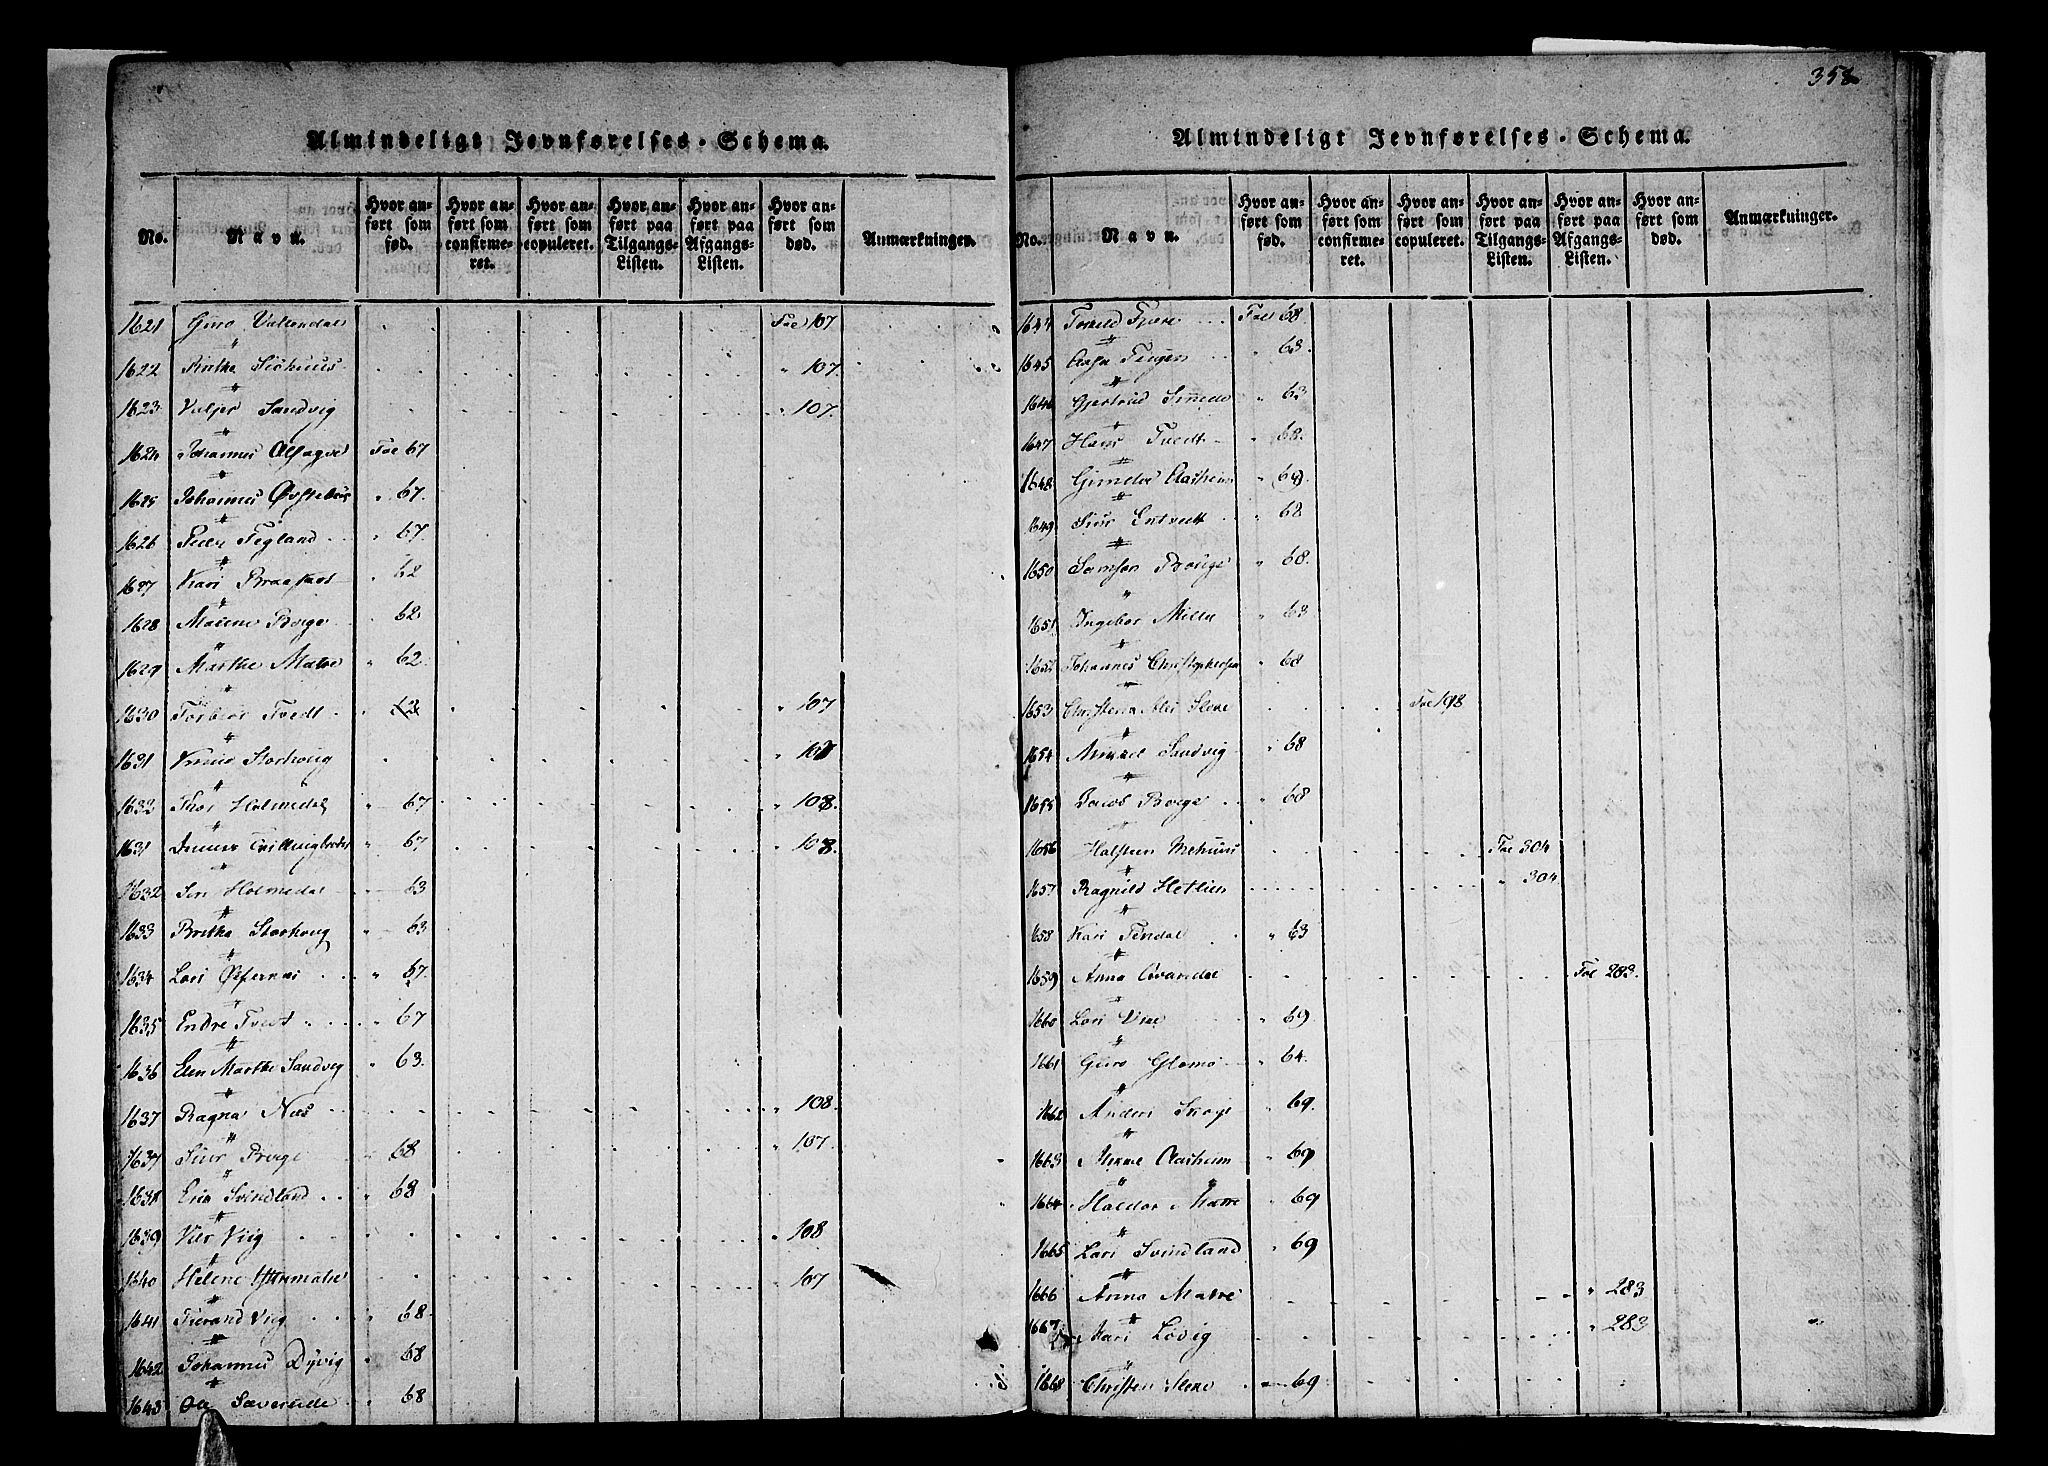 358
Almindeligt Jevnførelses-Schema.
No.
Navn.
Hvor anført som fød.
Hvor anført som confirmeret.
Hvor anført som copuleret.
Hvor anført paa Tilgangs-Listen.
Hvor anført paa Afgangs-Listen.
Hvor anført som død.
Anmærkninger.
1621 Guro Valendal Fol 107
1622 107.
1623 Sandvig " 107.
1624 Johannes Fol 67
1625 Johannes " 67.
1626 Peder Tegland " 67.
1627 Kari " 62
1628 Marine Berge 62
1629 Marthe Matre " 62
1630 Torbior Tvedt 62 " 107
1631 Storhoug " 107
1632 Thor Holmedal " 67 " 108.
1631 67. 108.
1632 Siri Holmedal 63
1633 Brithe Storhoug " 63
1634 Lars Ølfernæs " 67.
1635 Endre Tvedt 67
1636 Elen Marthe Sandvig " 63.
1637 Ragna Næs " 108.
1637 Siur Berge 68 " 107.
1638 Eric Svindland " 68
1639 Viig 108
1640 Helene 107
1641 Viig 68.
1642 Johannes Dyvig " 68
1643 Ole Sæverude " 68
Almindeligt Jevnførelses-Schema.
No.
Navn.
Hvor anført som fød.
Hvor anført som confirmeret.
Hvor anført som copuleret.
Hvor anført paa Tilgangs-Listen.
Hvor anført paa Afgangs-Listen.
Hvor anført som død.
Anmærkninger.
1644 Torkild Fjære Fol 68.
1645 " 63.
1646 Gjertrud " 63
1647 Hans Tvedt " 68.
1648 Gunder Aasheim " 69
1649 Siur Entvedt 68
1650 Samson Berge " 68.
1651 Ingebor " 63
1652 Johannes Christophersen " 68
1653 Fol 198
1654 Mikkel Sandvig " 68
1655 Jacob Berge " 68
1656 Halsteen Mehuus Fol 304
1657 Ragnild Hetlien " 304.
1658 Kari Tendal " 63
1659 Anna Fol 283.
1660 Lars " 69
1661 Guro " 64.
1662 Anders " 69.
1663 Aasheim " 69
1664 Haldor Matre " 69
1665 Lars Svindland " 69
1666 Anna Matre " 283
1667 Kari Løvig " 283
1668 Christen 69